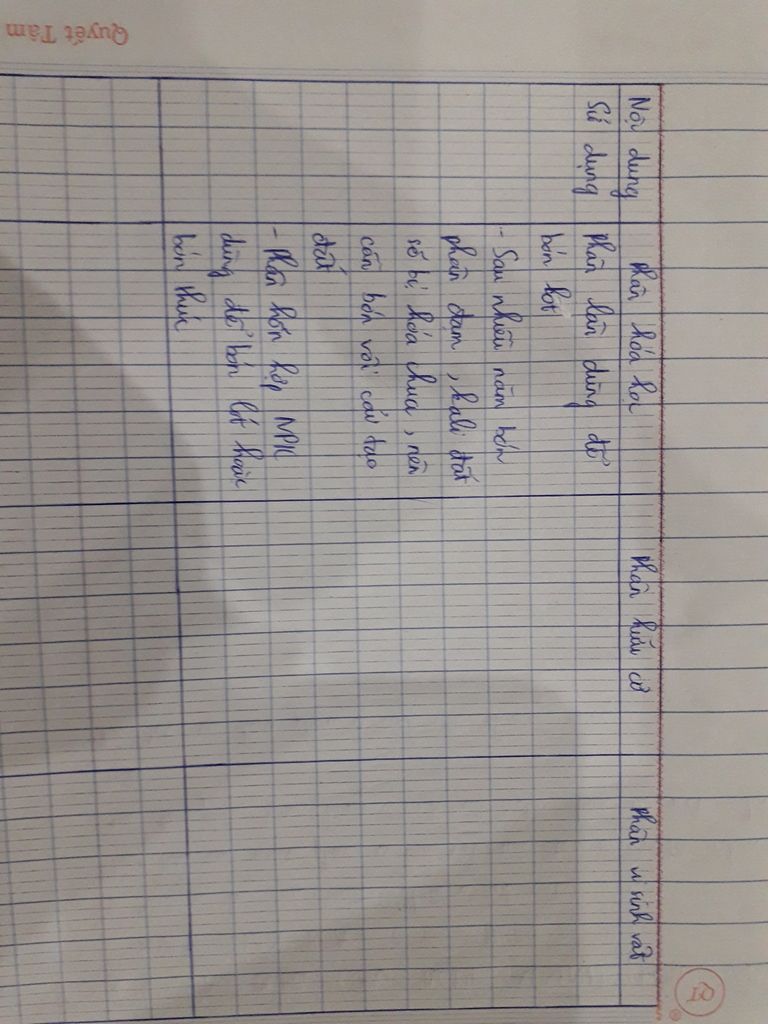 Quyết Tâm
QT
Nội dung
Phân hóa học
Phân hữu cơ
Phân vi sinh vật
Sử dụng
Phân lân dùng để
bón lót
- Sau nhiều năm bón
phân đạm, kali đất
sẽ bị hóa chua, nên
cần bón vôi cải tạo
đất
- Phân hỗn hợp NPK
dùng để bón lót hoặc
bón thúc